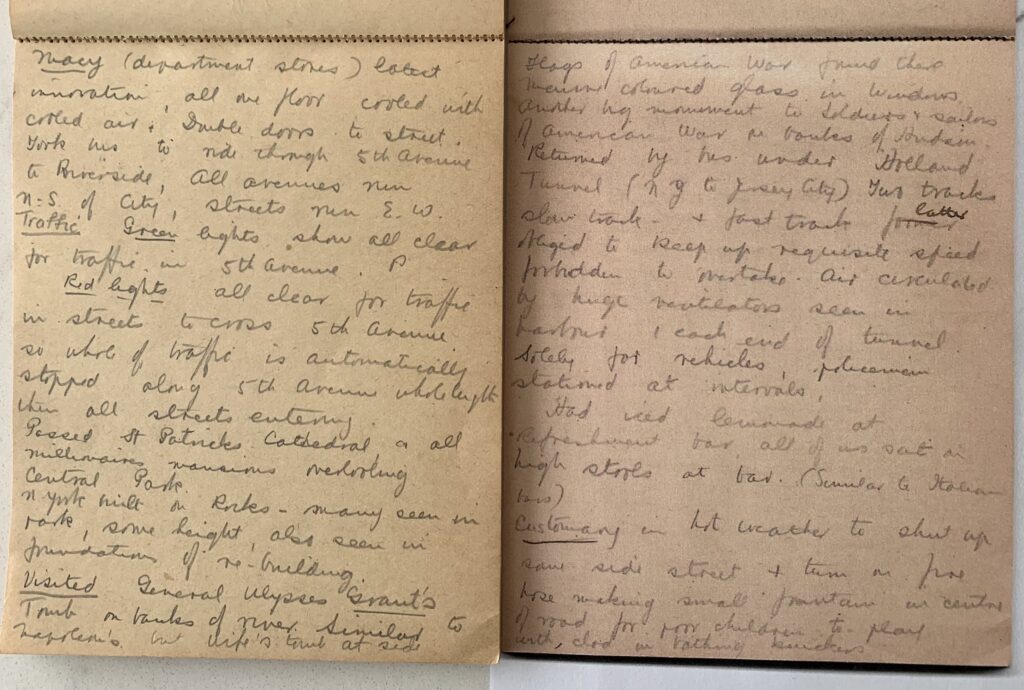 Macy (department stores) latest
innovation, all one floor cooled with
cooled air. Double doors to street.
Took bus to ride through 5th Avenue
to Riverside, All avenues run
N-S. of City, streets run E. W.
Traffic Green lights show all clear
for traffic in 5th Avenue.
Red lights all clear for traffic
in streets to cross 5th Avenue.
so whole of traffic is automatically
stopped along 5th Avenue whole length
then all streets entering.
Passed St Patricks Cathedral & all
millionaires mansions overlooking
Central Park.
N York built on Rocks - many seen in
park, some height, also seen in
foundations of re-building.
Visited General Ulysses Grant's
Tomb on banks of river. Similar to
Napoleon's but wife's tomb at side
Flags of American War found there
mauve coloured glass in windows.
Another big monument to Soldiers & sailors
of American War on banks of Hudson.
Returned by bus under Holland
Tunnel (N Y to Jersey City) Two tracks
slow track & fast track former latter
obliged to keep up requisite speed
forbidden to overtake. Air circulated
by huge ventilators seen in
harbour 1 each end of tunnel
Solely for vehicles, policemen
stationed at intervals,
Had iced lemonade at
Refreshment bar all of us sat on
high stools at bar. (Similar to Italian
bars)
Customary in hot weather to shut up
some side street & turn on fire
hose making small fountain in centre
of road for poor children to play
with, clad in bathing knickers